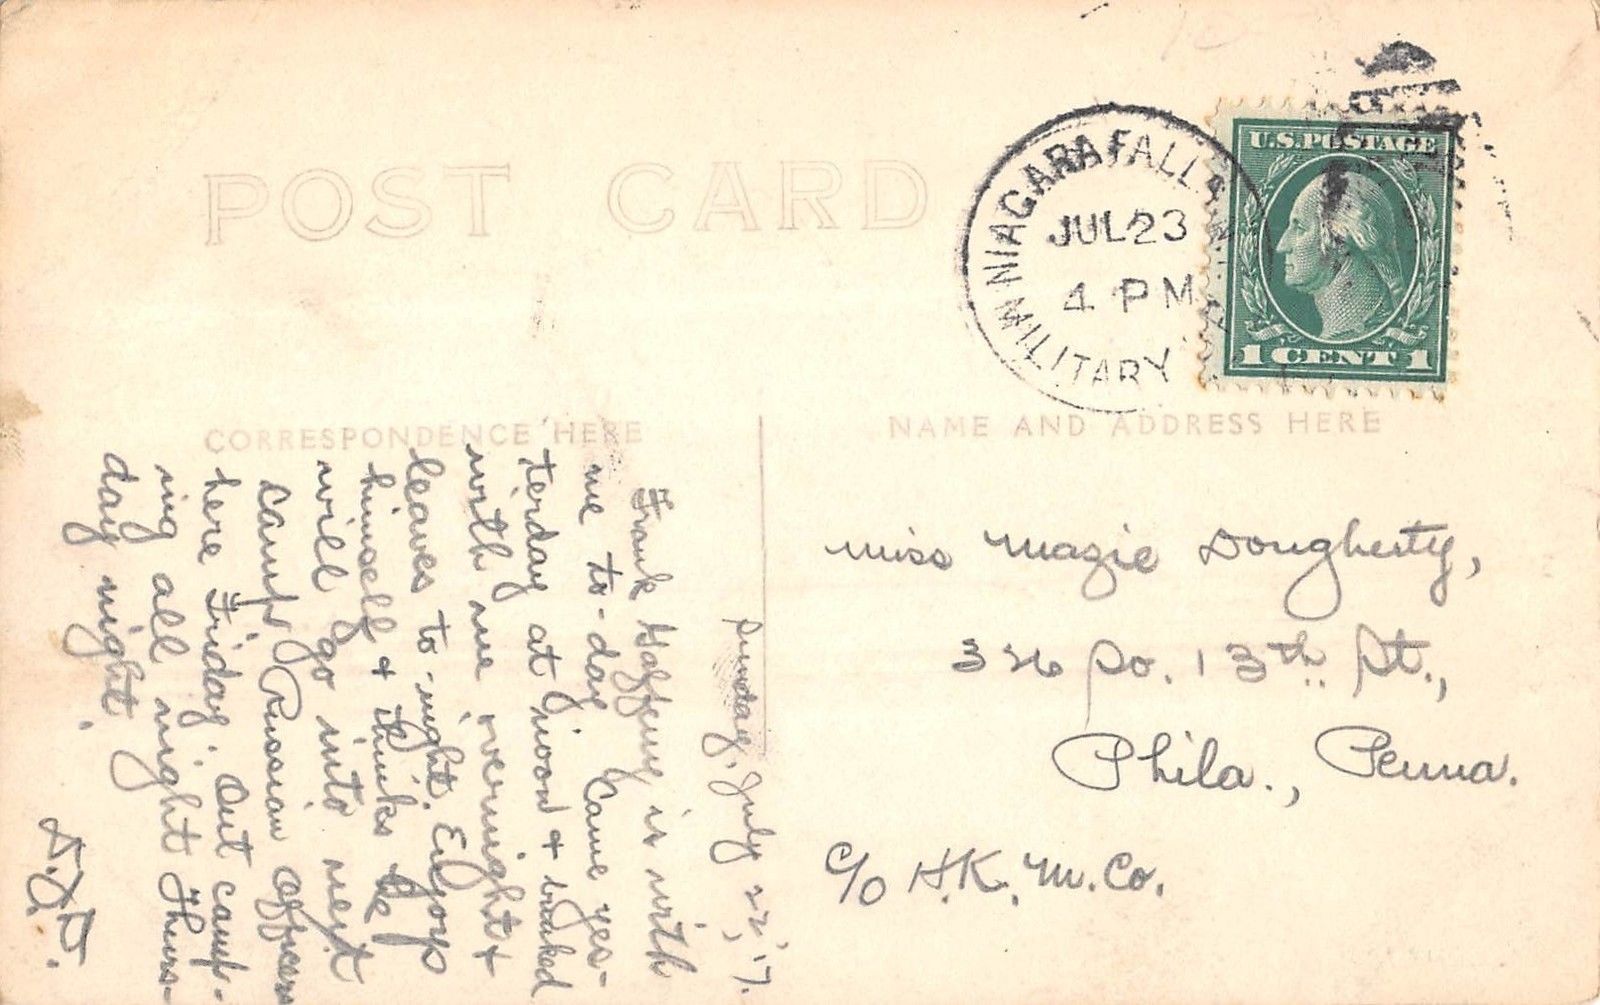 POST CARD
NIAGARA FALLS
JUL 23
4 PM
MILITARY
U.S. POSTAGE
1 CENT 1
CORRESPONDENCE HERE
NAME AND ADDRESS HERE
Sunday, July 22, '17.
Frank Gaffeny is with
me to-day. Came yes-
terday at noon &
with me overnight &
leaves to-night. Enjoys
himself & thinks he
will go into next
camp. Russian officers
here Friday. Out camp-
ing all night Thurs-
day night.
Miss Mazie Dougherty,
326 So. 13th. St.,
Phila., Penna.
c/o H.K.M.Co.